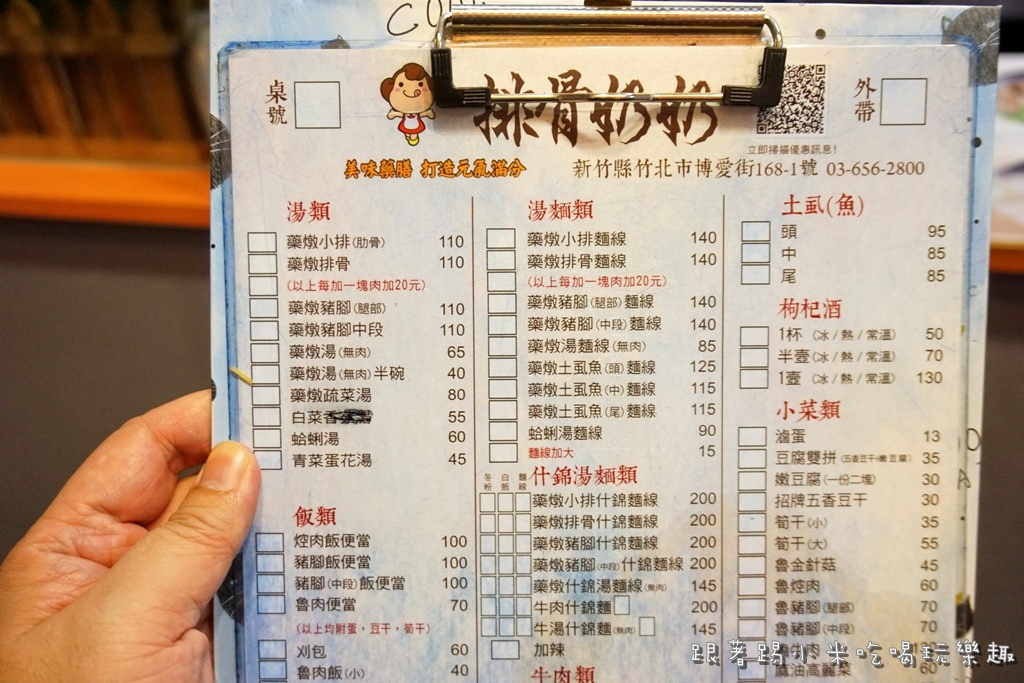 桌號
排骨奶奶
外帶
立即掃描優惠訊息!
美味藥膳 打造元氣滿分
新竹縣竹北市博愛街168-1號 03-656-2800
湯類
藥燉小排(肋骨) 110
藥燉排骨 110
(以上每加一塊肉加20元)
藥燉豬腳(腿部) 110
藥燉豬腳中段 110
藥燉湯(無肉) 65
藥燉湯(無肉)半碗 40
藥燉疏菜湯 80
白菜 55
蛤蜊湯 60
青菜蛋花湯 45
飯類
焢肉飯便當 100
豬腳飯便當 100
豬腳(中段)飯便當 100
魯肉便當 70
(以上均附蛋,豆干,筍干)
刈包 60
魯肉飯(小) 40
湯麵類
藥燉小排麵線 140
藥燉排骨麵線 140
(以上每加一塊肉加20元)
藥燉豬腳(腿部)麵線 140
藥燉豬腳(中段)麵線 140
藥燉湯麵線(無肉) 85
藥燉土虱魚(頭)麵線 125
藥燉土虱魚(中)麵線 115
藥燉土虱魚(尾)麵線 115
蛤蜊湯麵線 90
麵線加大 15
什錦湯麵類
冬粉 白飯 麵線
藥燉小排什錦麵線 200
藥燉排骨什錦麵線 200
藥燉豬腳什錦麵線 200
藥燉豬腳(中段)什錦麵線 200
藥燉什錦湯麵線(無肉) 145
牛肉什錦麵 200
牛湯什錦麵(無肉) 145
加辣
牛肉類
土虱(魚)
頭 95
中 85
尾 85
枸杞酒
1杯 (冰/熱/常溫) 50
半壺(冰/熱/常溫) 70
1壺 (冰/熱/常溫) 130
小菜類
滷蛋 13
豆腐雙拼(五香豆干+嫩豆腐) 35
嫩豆腐(一份二塊) 30
招牌五香豆干 30
筍干(小) 35
筍干(大) 55
魯金針菇 45
魯焢肉 60
魯豬腳(腿部) 70
魯豬腳(中段) 70
麻油高麗菜 60
跟著踢小米吃喝玩樂趣